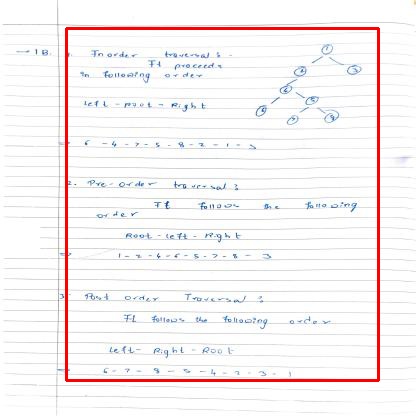 1B. 1. Inorder traversal :-
It proceeds
in following order
Left - Root - Right
6 - 4 - 7 - 5 - 8 - 2 - 1 - 3
2. Pre-order traversal :
It follows the following
order
Root - Left - Right
1 - 2 - 4 - 6 - 5 - 7 - 8 - 3
3. Post order Traversal :
It follows the following order
Left - Right - Root
6 - 7 - 8 - 5 - 4 - 2 - 3 - 1
1
3
5